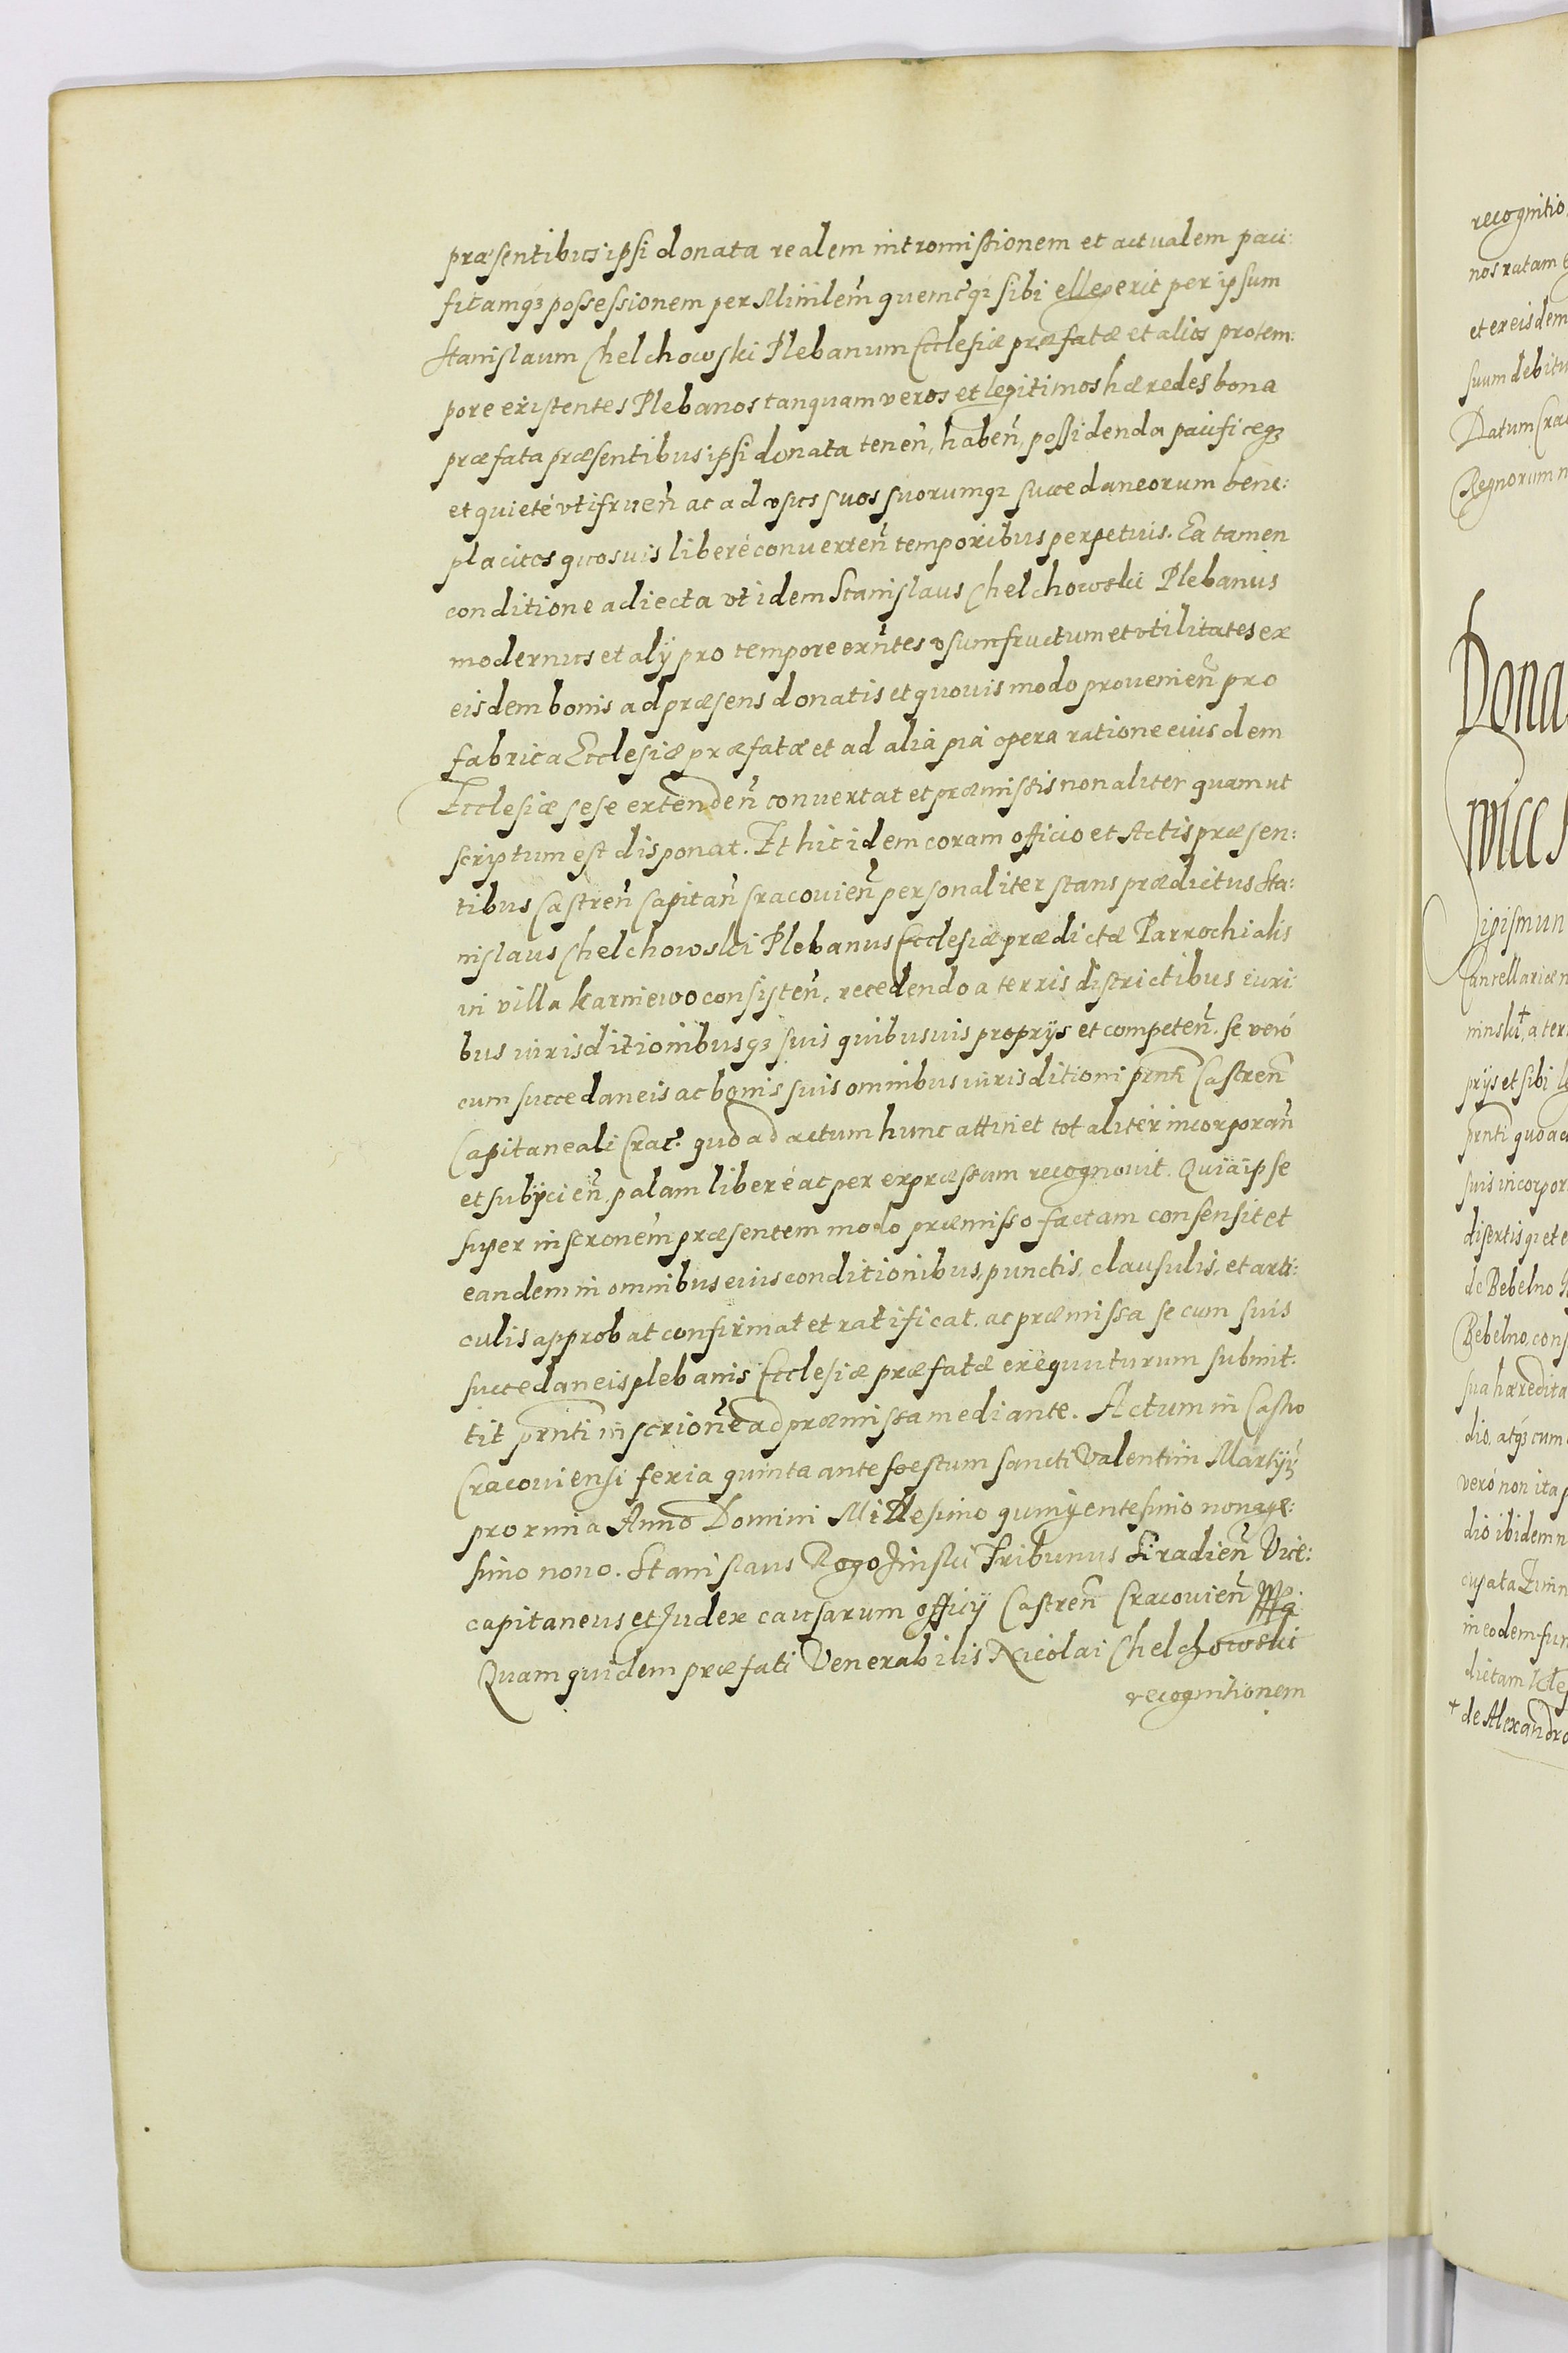 præsentibus ipsi donata realem intromissionem et actualem paci:
ficamq3 possessionem per Miñlem̃ quemcq3 sibi ellegerit per ipsum
Stanislaum Chelchowski Plebanum Ecclesiæ præfatæ et alios pro tem:
pore existentes Plebanos tanquam veros et legitimos hæredes bona
præfata præsentibus ipsi donata teneñ, habeñ, possidenda pacificeq3
et quietè vtifrueñ ac ad vsus suos suorumq3 succedaneorum bene:
placitos quosuis liberè conuerteñ temporibus perpetuis. Ea tamen
conditione adiecta vt idem Stanislaus Chelchowski Plebanus
modernus et alÿ pro tempore exñtes vsumfructum et vtilitates ex
eisdem bonis ad præsens donatis et quouis modo prouenieñ pro
fabrica Ecclesiæ præfatæ et ad alia pia opera ratione eiusdem
Ecclesiæ sese extendeñ conuertat et præmissis non aliter quam ut
scriptum est disponat. Et hic idem coram officio et Actis præsen:
tibus Castreñ Capitañ Cracouieñ personaliter stans prædictus Sta:
nislaus Chelchowski Plebanus Ecclesiæ prædictæ Parrochialis
in villa Karniewo consisteñ, recedendo a terris districtibus iuri:
bus iurisditionibusq3 suis quibusuis proprÿs et competeñ. se verò
cum succedaneis ac bonis suis omnibus iurisditioni prñti Castreñ
Capitaneali Crac̃. quo ad actum hunc attinet totaliter incorporañ
et subÿcieñ, palam liberè ac per expræssum recognouit. Quia ipse
super inscroñem præsentem modo præmisso factam consensit et
eandem in omnibus eius conditionibus, punctis, clausulis, et arti:
culis approbat confirmat et ratificat. ac præmissa se cum suis
succedaneis plebanis Ecclesiæ præfatæ exequuturum submit:
tit prñti inscrioñe ad præmissa mediante. Actum in Castro
Cracouiensi feria quinta ante foestum sancti Valentini Martÿr̃
proxima Anno Domini Millesimo quingentesimo nonage:
simo nono. Stanislaus Rogozinski Tribunus Siradieñ Vice:
capitaneus et Judex causarum officÿ Castreñ Cracouieñ
Quam quidem præfati Venerabilis Nicolai Chelchowski
recognitionem
recognitio
nos ratam
et ex eisdem
suum debitu
Datum Crac
Regnorum n
Dona
wice
Sigismun
Cancellariæ n
ninski + a ter
prÿs et sibi
prñti quo ac
suis incorpor
disertisq3 et e
de Bebelno
Bebelno, cons
sua hæredita
dio, atq3 cum
verò non ita
dio ibidem n
cupata
in eodem fun
dictam
+ de Alexandro